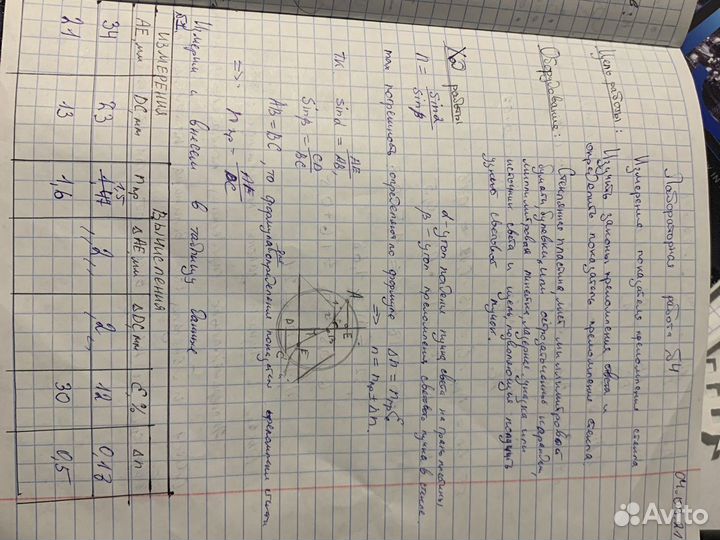 Лабораторная работа №4
Измерение показателя преломления стекла
Цель работы: Изучить законы преломления света и
определить показатель преломления стекла.
Оборудование: Стеклянная пластина, лист миллиметровой
бумаги, булавки, или остро заточенные карандаши,
миллиметровая линейка, лазерная указка или
источник света и щель, позволяющая получить
узкий световой пучок.
Ход работы
n = sinα / sinβ
α - угол падения пучка света на грань пластины
β - угол преломления светового пучка в стекле.
max погрешность определяют по формуле Δn = nпр ε
=> n = nпр ± Δn.
тк sinα = AE / AB,
sinβ = CD / BC
AB = BC, то формула для определения показателя преломления стекла
=> nпр = AE / DC
Измерим и внесём в таблицу данные
ИЗМЕРЕНИЯ ВЫЧИСЛЕНИЯ
AE, мм DC, мм nпр ΔAE, мм ΔDC, мм ε, % Δn
34 23 1,5 2 2 12 0,18
21 13 1,6 30 0,5
Avito